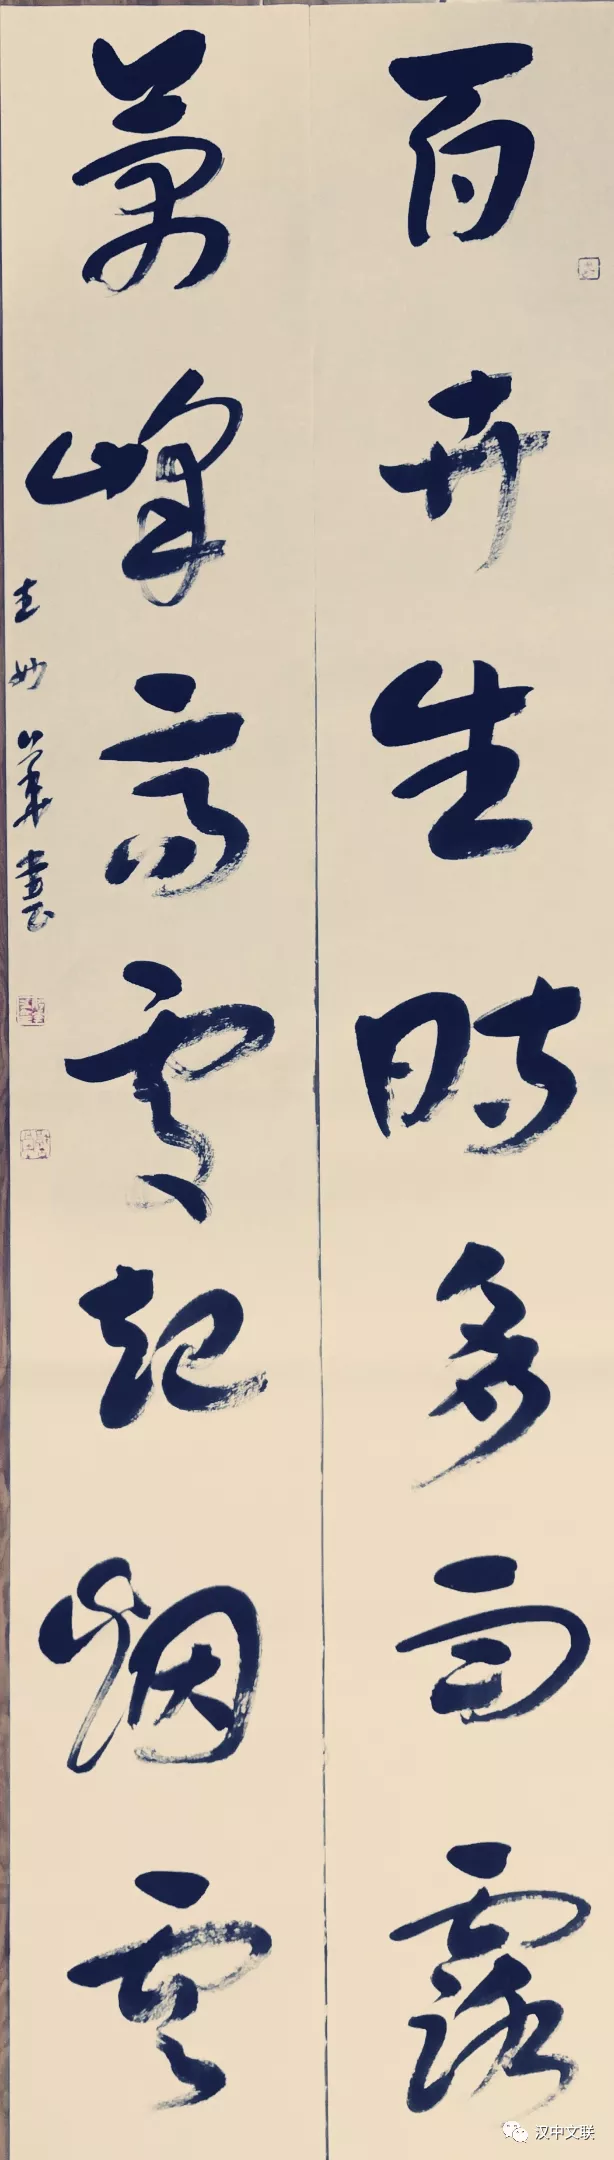 百卉生時多雨露
萬峰高處起烟雲
王妙華書
汉中文联